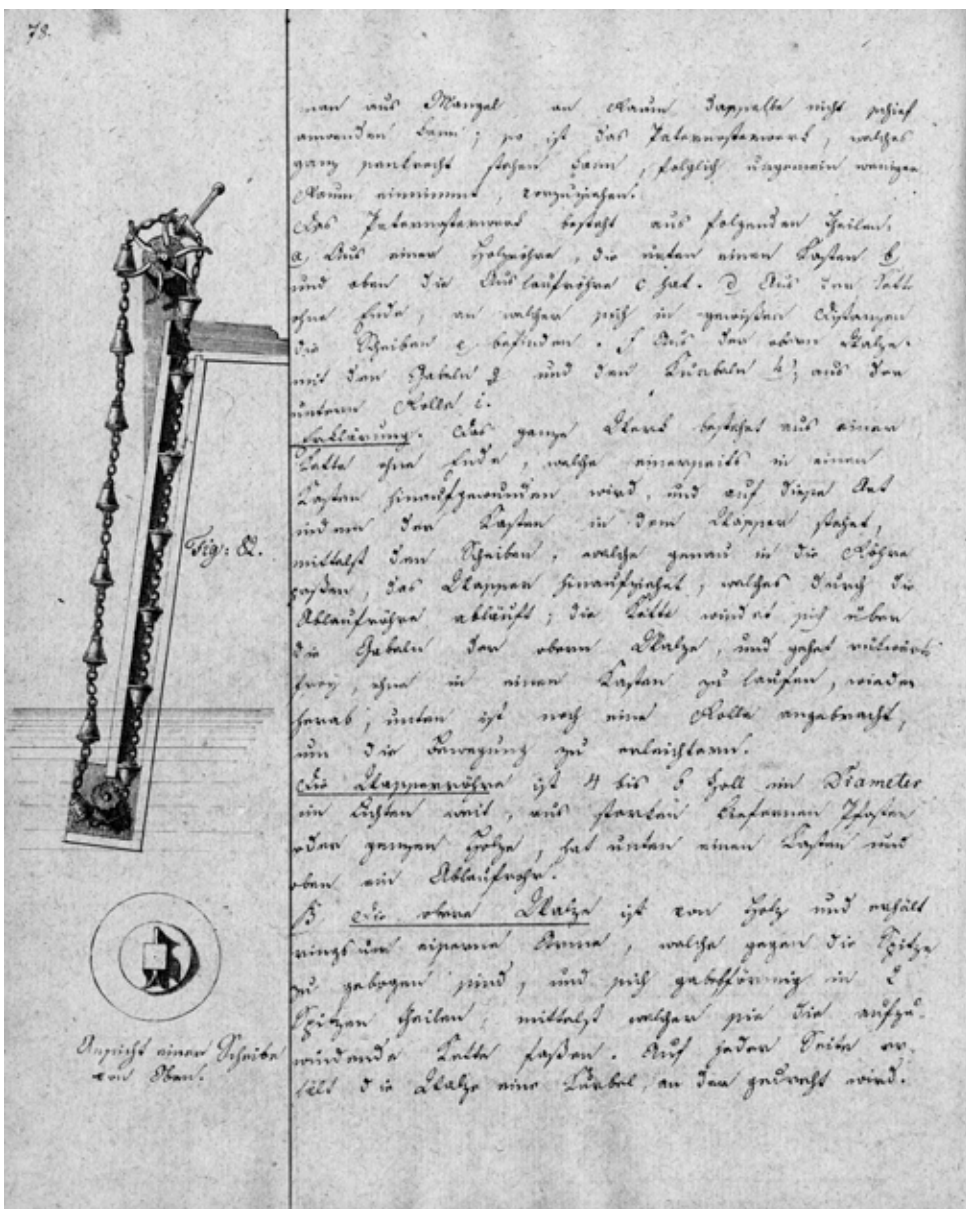 78.
man aus Mangel an Raum dasselbe nicht schief
anwenden kann; so ist das Paternosterwerk, welches
ganz senkrecht stehen kann, folglich ungemein weniger
Raum einnimmt, vorzuziehen.
Das Paternosterwerk besteht aus folgenden Theilen.
a Aus einer Holzröhre, die unten einen Kasten b
und oben die Auslaufröhre c hat. d Aus der Kette
ohne Ende, an welcher sich in gewißen Distanzen
die Scheiben e befinden. f Aus der obern Walze
mit den Gabeln g und den Kurbeln h, aus der
untern Rolle i.
Erklärung. Das ganze Werk bestehet aus einer
Kette ohne Ende, welche einerseits in einen
Kasten hinaufgewunden wird, und auf diese Art
indem der Kasten in dem Wasser stehet,
mittelst den Scheiben, welche genau in die Röhre
paßen, das Wasser hinaufziehet, welches durch die
Ablaufröhre abläuft; die Kette windet sich über
die Gabeln der obern Walze, und gehet rükwärts
frey, ohne in einen Kasten zu laufen, wieder
herab, unten ist noch eine Rolle angebracht,
um die Bewegung zu erleichtern.
Die Wasserröhre ist 4 bis 6 Zoll im Diameter
im Lichten weit, aus starken kiefernen Pfosten
oder ganzen Holze, hat unten einen Kasten und
oben ein Ablaufrohr.
Die obere Walze ist von Holz und erhält
ringsum eiserne Arme, welche gegen die Spitze
zu gebogen sind, und sich gabelförmig in 2
Spitzen theilen, mittelst welcher sie die aufzu-
windende Kette faßen. Auf jeder Seite er-
hält die Walze eine Kurbel, an der gedreht wird.
Fig: 82.
Ansicht einer Scheibe
von Oben.